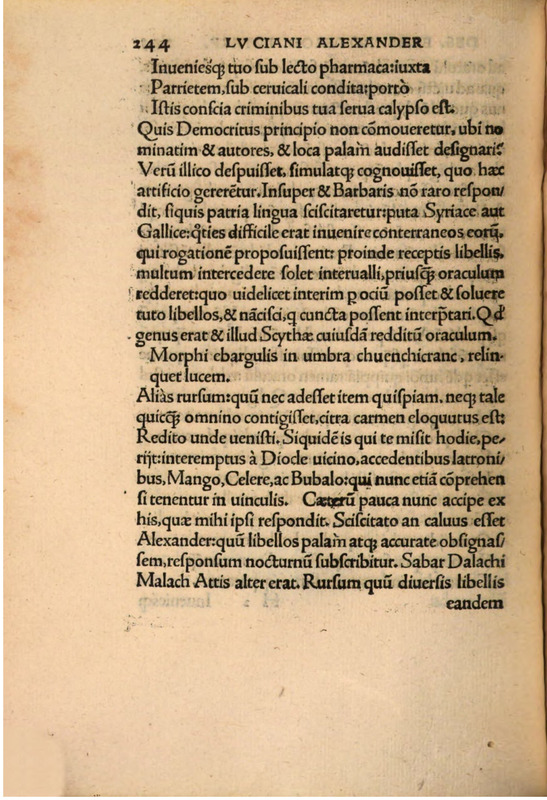 244 LVCIANI ALEXANDER
Inuenieſq́; tuo ſub lecto pharmaca:iuxta
Parrietem,ſub ceruicali condita:porrò
Iſtis conſcia criminibus tua ſerua calypſo eſt.
Quis Democritus principio non cōmoueretur, ubi no
minatim & autores, & loca palàm audiſſet deſignari?
Verū illico deſpuiſſet, ſimulatq; cognouiſſet, quo hæc
artificio gererētur. Inſuper & Barbaris nō raro reſpon/
dit, ſiquis patria lingua ſciſcitaretur:puta Syriace aut
Gallice: difficile erat inuenire conterraneos eorū,
qui rogationē propoſuiſſent: proinde receptis libellis,
multum intercedere ſolet interualli, priuſq̃ oraculum
redderet:quo uidelicet interim ꝑ ociū poſſet & ſoluere
tuto libellos, & nāciſci, q cuncta poſſent interp̃tari. Qđ
genus erat & illud Scythæ cuiuſdā redditū oraculum.
Morphi ebargulis in umbra chuenchicranc, relin-
quet lucem.
Aliàs rurſum:quū nec adeſſet item quiſpiam, neq; tale
quicq̃ omnino contigiſſet, citra carmen eloquutus eſt:
Redito unde ueniſti. Siquidē is qui te miſit hodie, pe/
rijt:interemptus à Diocle uicino, accedentibus latroni/
bus, Mango, Celere, ac Bubalo:qui nunc etiā cōprehen
ſi tenentur in uinculis. Cæterū pauca nunc accipe ex
his, quæ mihi ipſi reſpondit. Sciſcitato an caluus eſſet
Alexander:quū libellos palàm atq; accurate obſignaſ/
ſem, reſponſum nocturnū ſubſcribitur. Sabar Dalachi
Malach Attis alter erat. Rurſum quū diuerſis libellis
eandem